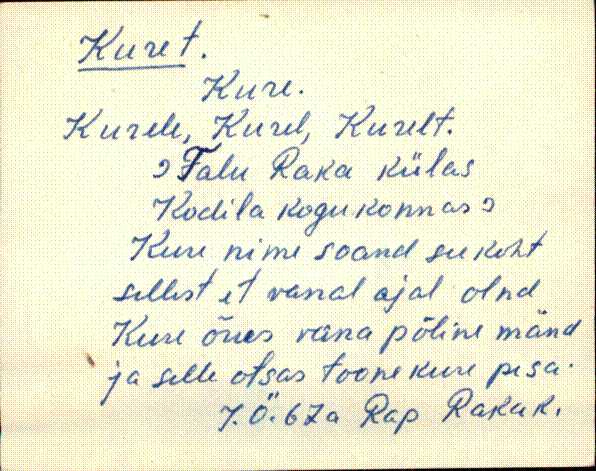 Kuret.
Kure.
Kurele, Kurel, Kurelt.
Talu Raka külas
Kodila kogukonnas
Kure nime soand see koht
sellest et vanal ajal olnd
Kure õues vana põline mänd
ja selle otsas toonekure pesa.
J.Ö. 67a Rap Raka k.